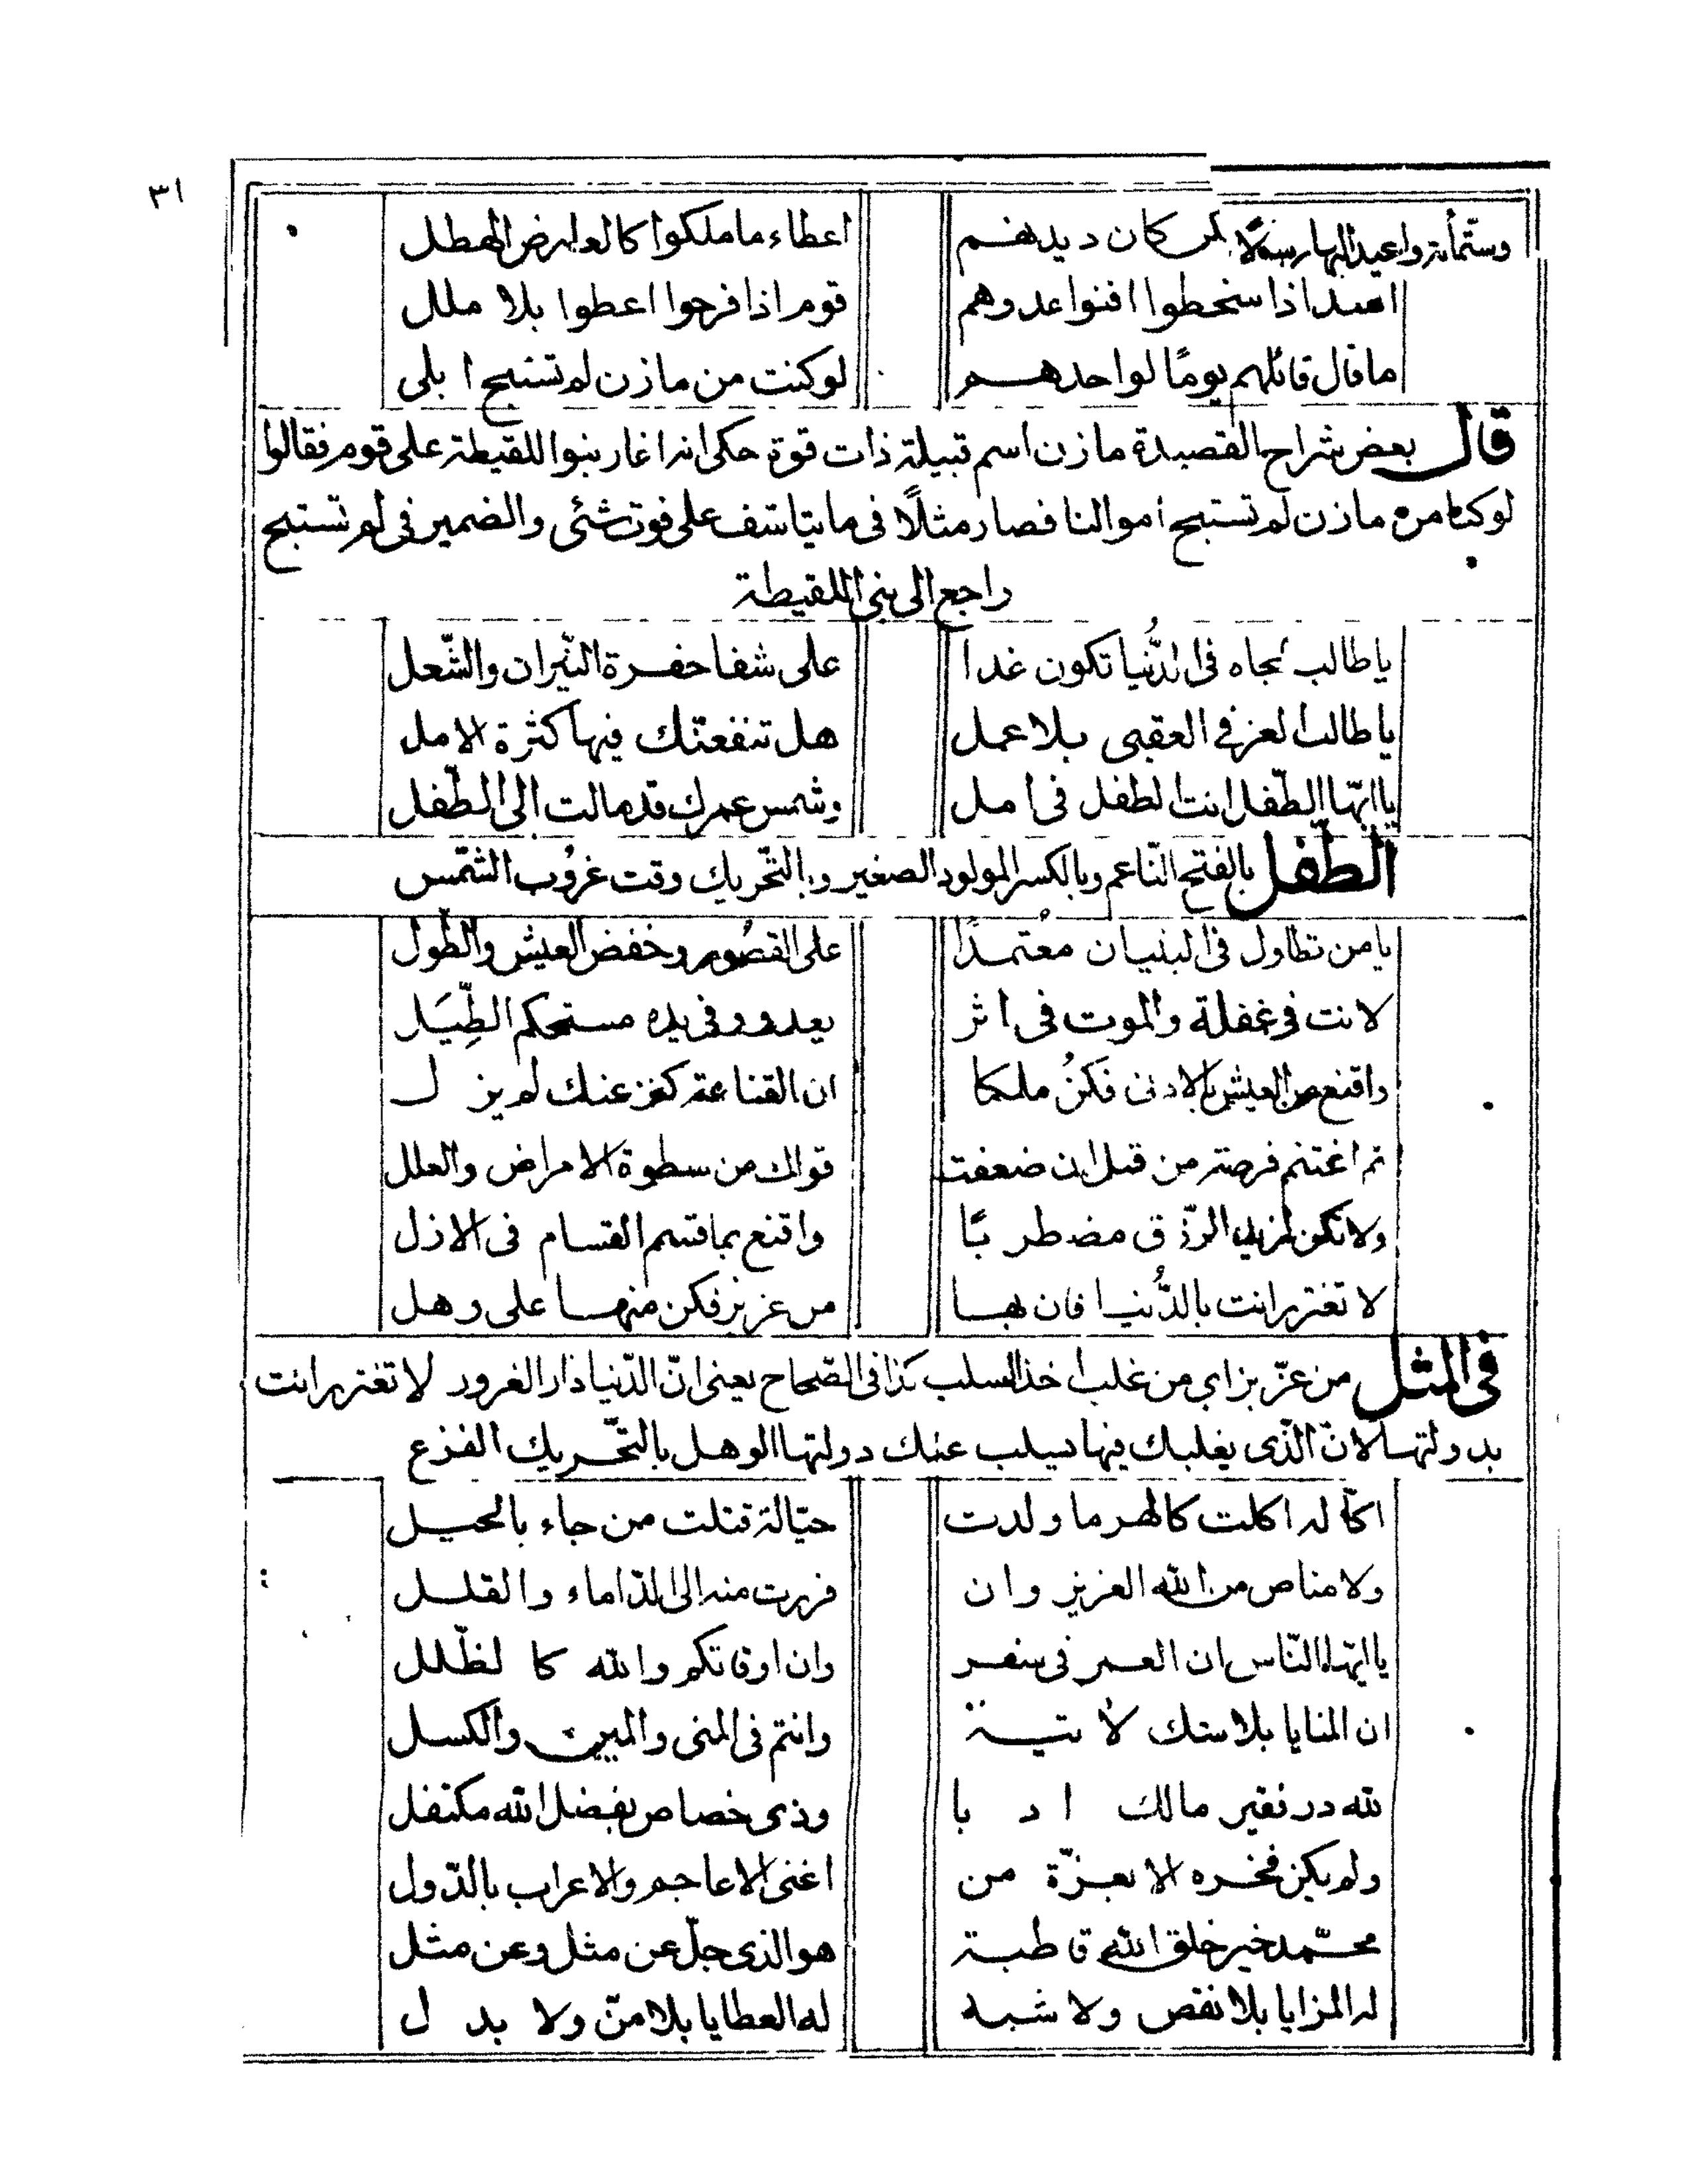 ٣١
لمن كان ديدنهم اعطاء ما ملكوا كالعارض الهطل
اسد اذا سخطوا افنوا عدوهم قوم اذا فرحوا اعطوا بلا ملل
ما قال قائلهم يومًا لواحدهم لو كنت من مازن لم تستبح ابلى
قال بعض شراح القصيدة مازن اسم قبيلة ذات قوة حكى انه اغار بنوا للقيطة على قوم فقالوا
لو كنا من مازن لم تستبح اموالنا فصار مثلًا فى ما يتاسف على فوت شئى والضمير فى لم تستبح
راجع الى بنى اللقيطة
يا طالب الجاه فى الدُّنيا تكون غدا على شفا حفرة النّيران والشّعل
يا طالب العز فى العقبى بلا عمل هل تنفعنّك فيها كثرة الامل
يا ايّها الطّفل انت الطفل فى امل وشمس عمرك قد مالت الى الطّفل
الطّفل بالفتح النّاعم وبالكسر المولود الصغير وبالتّحريك وقت غرُوب الشّمس
يا من تطاول فى البنيان معُتمدًا على القصُور وخفض العيش والطّول
لانت فى غفلة والموت فى اثر يعدو وفى يده مستحكم الطِّيَل
واقنع من العيش بالادنى فكنُ ملكا ان القناعة كنز عنك لم يزل
ثم اغتنم فرصة من قبل ان ضعفت قواك من سطوة الامراض والعلل
ولا تكن لمزيد الرّزق مضطربًا واقنع بما قسم القسام فى الازل
لا تغترر انت بالدُّنيا فان بها من عز بز فكن منها على وهل
فى المثل من عزّ بز اى من غلب اخذ السلب كذا فى الصّحاح يعنى انّ الدّنيا دار الغرور لا تغترر انت
بدولتها لانّ الّذى يغلبك فيها يسلب عنك دولتها الوهل بالتّحريك الفزع
اكّاله اكلت كالهر ما ولدت حيّالة قتلت من جاء بالحيل
ولا مناص من الله العزيز وان فررت منه الى الدّاماء والقلل
يا ايّها النّاس ان العمر فى سفر وان اوقاتكم والله كالظّلل
ان المنايا بلا شك لاٰتية وانتم فى المنى والمين والكسل
لله در فقير مالك ادبا وذى خصاص بفضل الله مكتفل
ولم يكن فخره الا بعزّة من اغنى الاعاجم والاعراب بالدّول
محمّد خير خلق الله قاطبة هو الذى جلّ عن مثل وعن مثل
له المزايا بلا نقص ولا شبه له العطايا بلا منّ ولا بدل